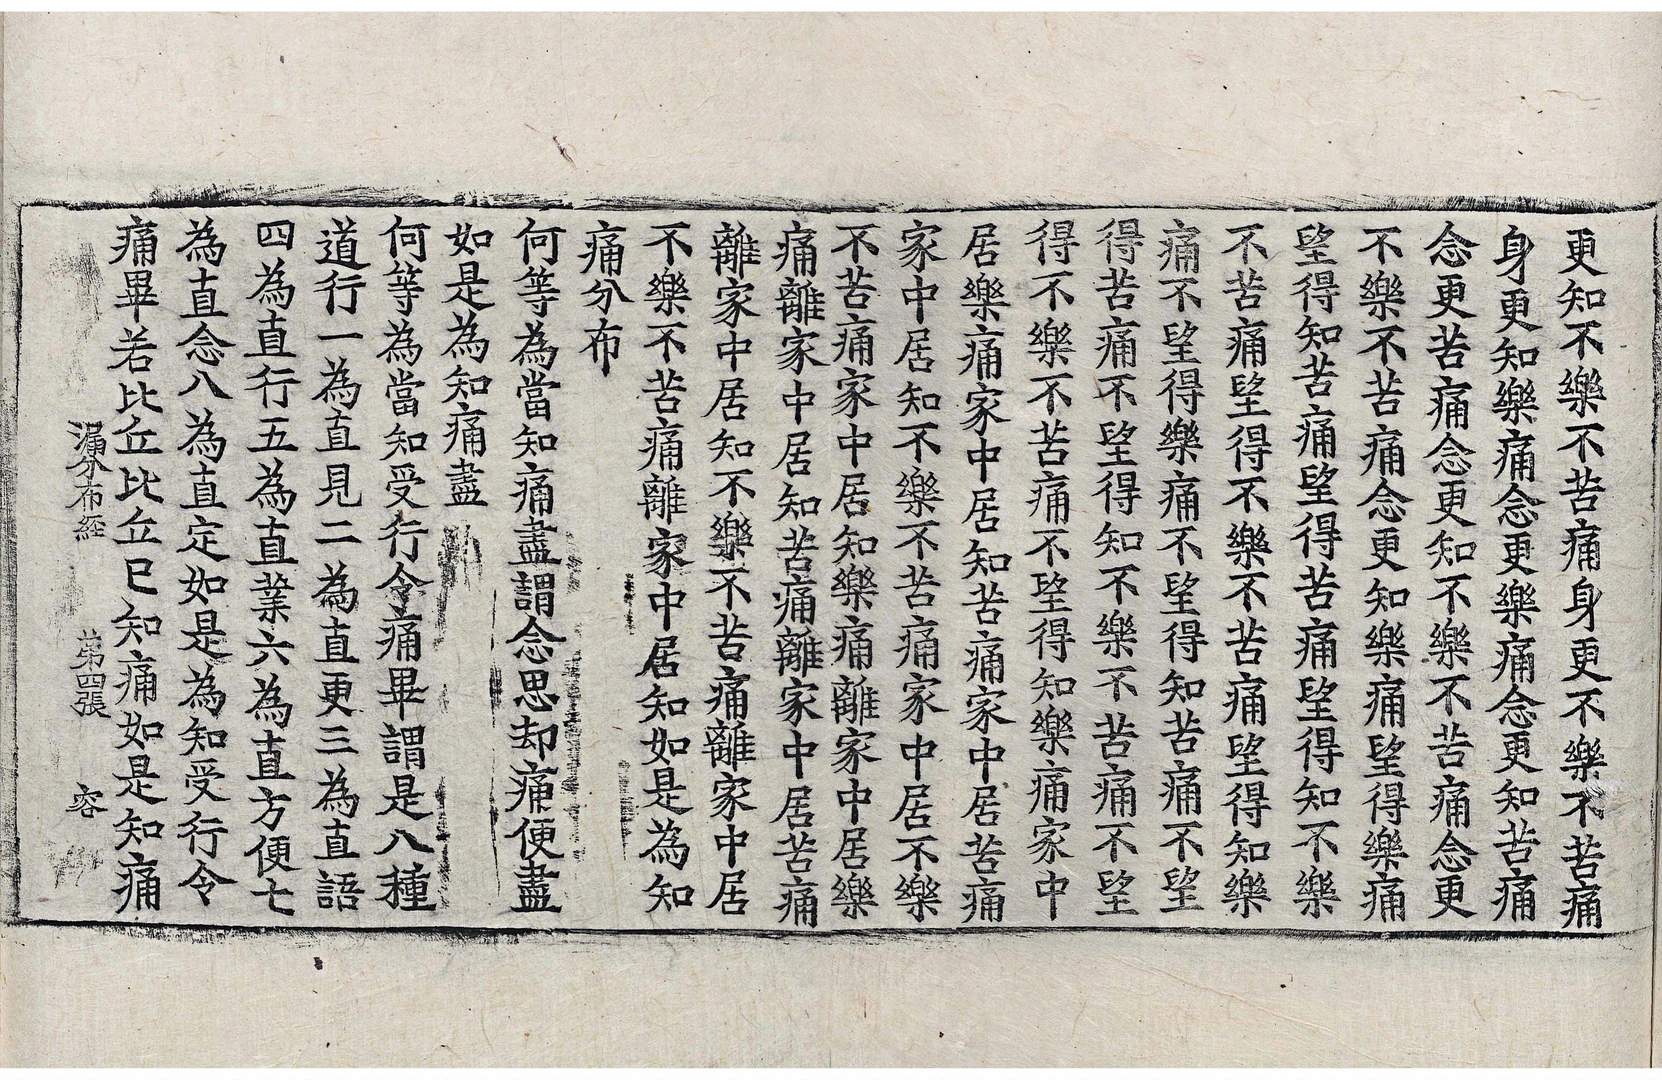 更知不樂不苦痛身更不樂不苦痛
身更知樂痛念更樂痛念更知苦痛
念更苦痛念更知不樂不苦痛念更
不樂不苦痛念更知樂痛望得樂痛
望得知苦痛望得苦痛望得知不樂
不苦痛望得不樂不苦痛望得知樂
痛不望得樂痛不望得知苦痛不望
得苦痛不望得知不樂不苦痛不望
得不樂不苦痛不望得知樂痛家中
居樂痛家中居知苦痛家中居苦痛
家中居知不樂不苦痛家中居不樂
不苦痛家中居知樂痛離家中居樂
痛離家中居知苦痛離家中居苦痛
離家中居知不樂不苦痛離家中居
不樂不苦痛離家中居知如是為知
痛分布
何等為當知痛盡謂念思却痛便盡
如是為知痛盡
何等為當知受行令痛畢謂是八種
道行一為直見二為直更三為直語
四為直行五為直業六為直方便七
為直念八為直定如是為知受行令
痛畢若比丘比丘已知痛如是知痛
漏分布経 第四張 容